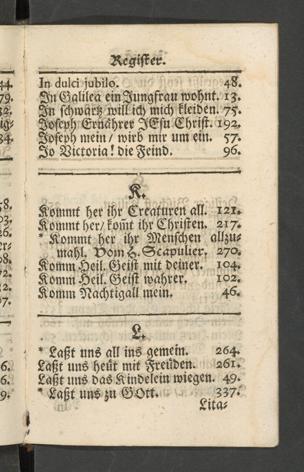 Register.
In dulci jubilo. 48.
In Galilea ein Jungfrau wohnt. 13.
In schwartz will ich mich kleiden. 75.
Joseph Ernährer JEsu Christ. 192.
Joseph mein / wird mir um ein. 57.
Jo Victoria! die Feind. 96.
K.
Kommt her ihr Creaturen all. 121.
Kommt her/ kom̃t ihr Christen. 217.
* Kommt her ihr Menschen allzu-
mahl. Vom H. Scapulier. 270.
Komm Heil. Geist mit deiner. 104.
Komm Heil. Geist wahrer. 102.
Komm Nachtigall mein. 46.
L.
* Laßt uns all ins gemein. 264.
Laßt uns heüt mit Freüden. 261.
Laßt uns das Kindelein wiegen. 49.
* Laßt uns zu GOtt. 337.
Lita-